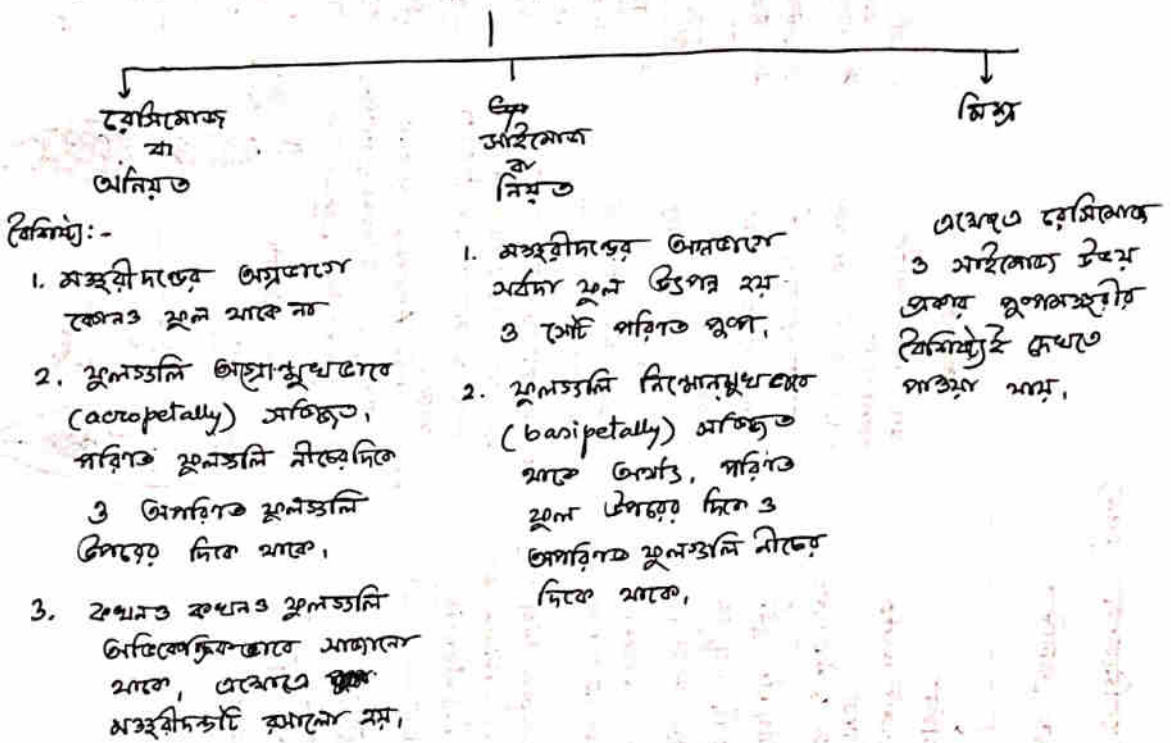 রেসিমোজ
বা
অনিয়ত
বৈশিষ্ট্য:-
1. মঞ্জরীদণ্ডের অগ্রভাগে
কোনও ফুল থাকে না
2. ফুলগুলি অগ্রোন্মুখভাবে
(acropetally) সজ্জিত,
পরিণত ফুলগুলি নীচের দিকে
ও অপরিণত ফুলগুলি
উপরের দিকে থাকে,
3. কখনও কখনও ফুলগুলি
অভিকেন্দ্রিকভাবে সাজানো
থাকে, এক্ষেত্রে
মঞ্জরীদণ্ডটি রসালো হয়,
সাইমোজ
বা
নিয়ত
1. মঞ্জরীদণ্ডের অগ্রভাগে
সর্বদা ফুল উৎপন্ন হয়
ও সেটি পরিণত পুষ্প,
2. ফুলগুলি নিম্নোন্মুখভাবে
(basipetally) সজ্জিত
থাকে অর্থাৎ, পরিণত
ফুল উপরের দিকে ও
অপরিণত ফুলগুলি নীচের
দিকে থাকে,
মিশ্র
এক্ষেত্রে রেসিমোজ
ও সাইমোজ উভয়
প্রকার পুষ্পমঞ্জরীর
বৈশিষ্ট্যই দেখতে
পাওয়া যায়,